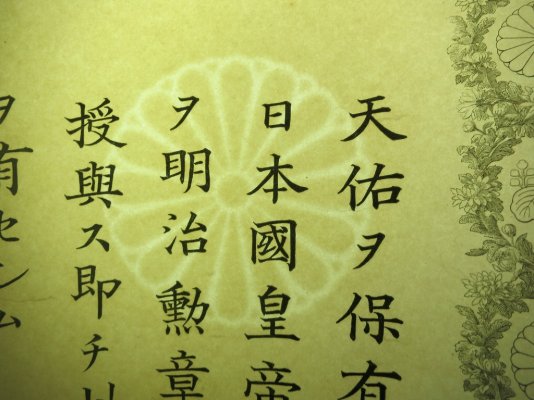 天佑ヲ保有
日本國皇帝
ヲ明治勲章
授與ス即チ
ヲ有セシム